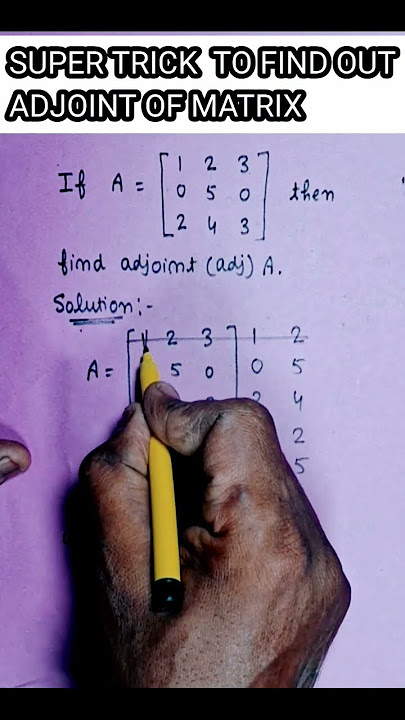 SUPER TRICK TO FIND OUT
ADJOINT OF MATRIX
If A = [1 2 3
0 5 0
2 4 3] then
find adjoint (adj) A.
Solution:-
1 2 3 1 2
A = 5 0 0 5
4
2
5